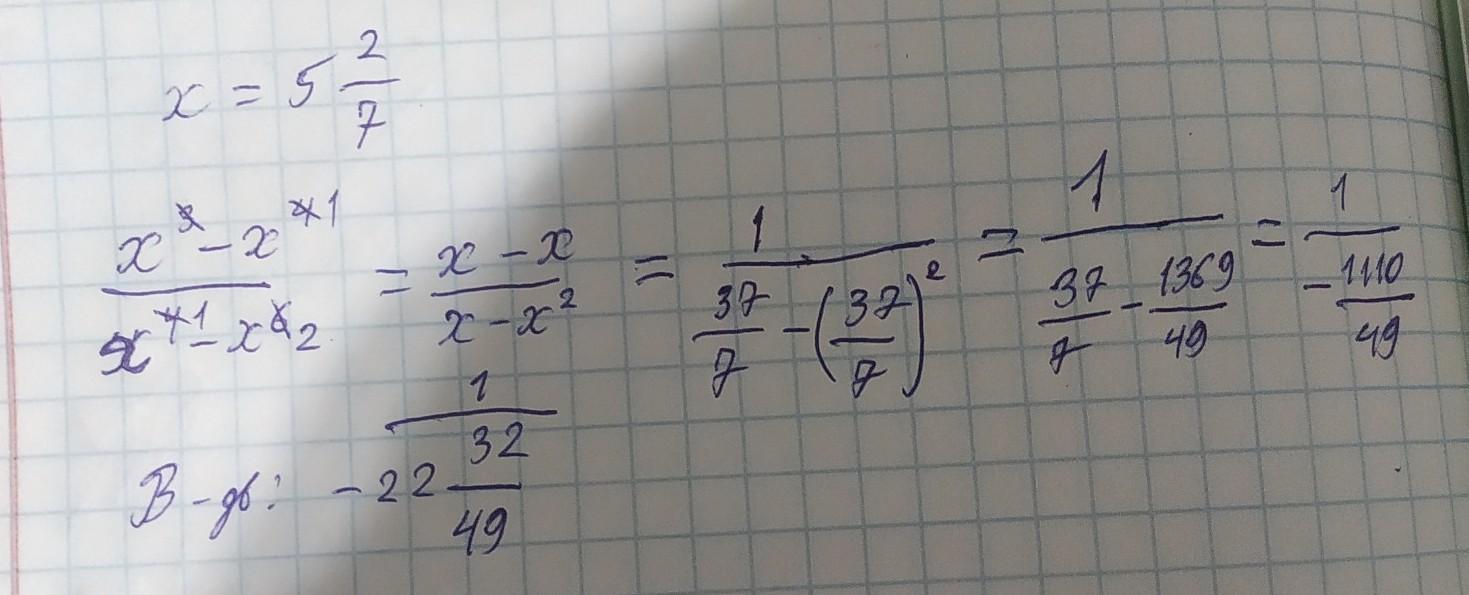 x = 5 2/7
(x^2 - x^4 1)/(x^4 1 - x^6 2) = (x - x)/(x - x^2) = 1/(37/7 - (37/7)^2) = 1/(37/7 - 1369/49) = 1/(-1110/49)
В-дь: 1/(-22 32/49)